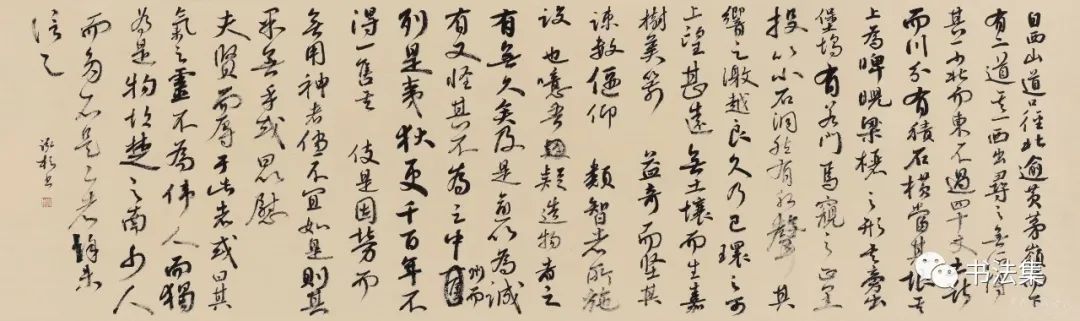 自西山道口徑北逾黃茅嶺而下
有二道其一西出尋之無所得
其一少北而東不過四十丈土斷
而川分有積石橫當其垠其
上為睥睨梁欐之形其旁出
堡塢有若門焉窺之正黑
投以小石洞然有水聲其
響之激越良久乃已環之可
上望甚遠無土壤而生嘉
樹美箭益奇而堅其
疎數偃仰類智者所施
設也噫吾疑造物者之
有無久矣及是愈以為誠
有又怪其不為之中州而
列是夷狄更千百年不
得一售其伎是固勞而
無用神者儻不宜如是則其
果無乎或曰以慰
夫賢而辱于此者或曰其
氣之靈不為偉人而獨
為是物故楚之南少人
而多石是二者余未
信之
书法集